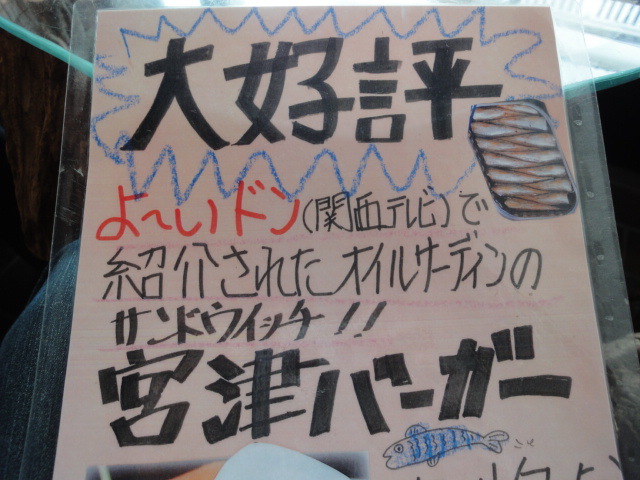 大好評
よ～いドン(関西テレビ)で
紹介された オイルサーディンの
サンドウイッチ!!
宮津バーガー